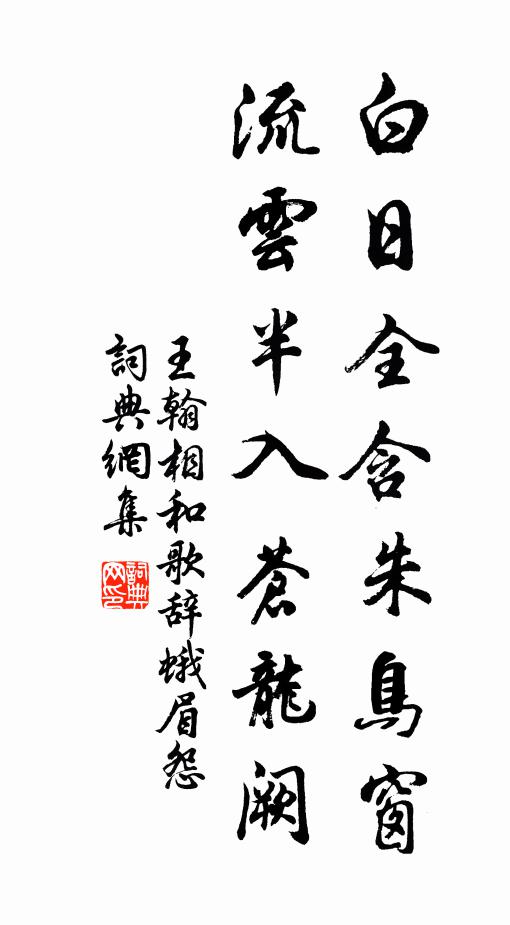 白日全含朱鳥窗
流雲半入蒼龍闕
王翰相和歌辞蛾眉怨
詞典網集
詞典网印